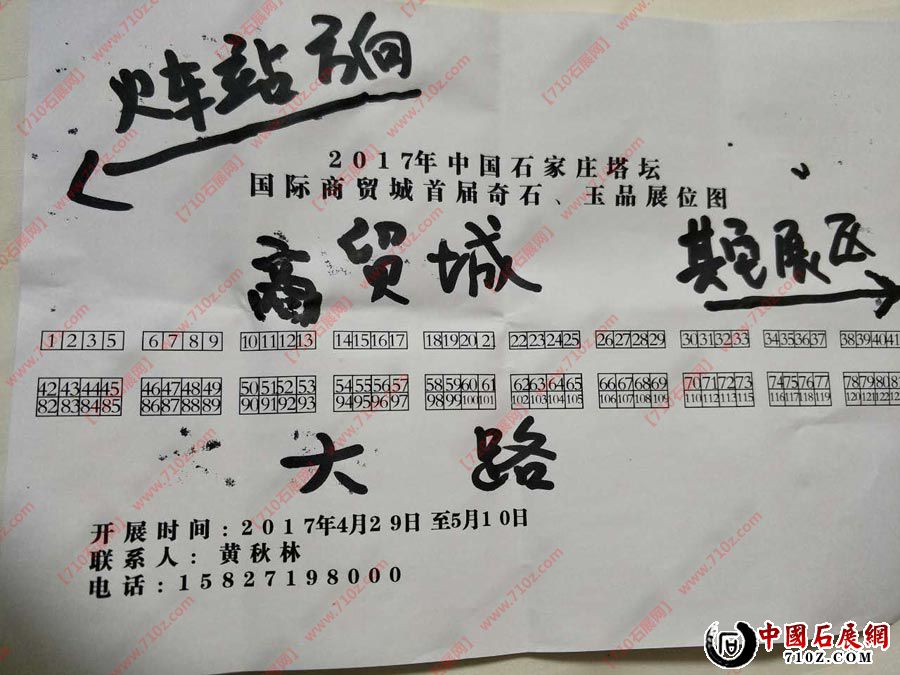 火车站方向
2017年中国石家庄塔坛
国际商贸城首届奇石、玉品展位图
商贸城
其它展区
1 2 3 5 6 7 8 9 10 11 12 13 14 15 16 17 18 19 20 21 22 23 24 25 26 27 28 29 30 31 32 33 34 35 36 37 38 39 40 41
42 43 44 45 46 47 48 49 50 51 52 53 54 55 56 57 58 59 60 61 62 63 64 65 66 67 68 69 70 71 72 73 74 75 76 77 78 79 80
82 83 84 85 86 87 88 89 90 91 92 93 94 95 96 97 98 99 100 101 102 103 104 105 106 107 108 109 110 111 112 113 116 117 118 119 120 121 122
大路
开展时间：2017年4月29日至5月10日
联系人：黄秋林
电话：15827198000
中國石展網
710Z.COM
【710石展网】
www.710z.com